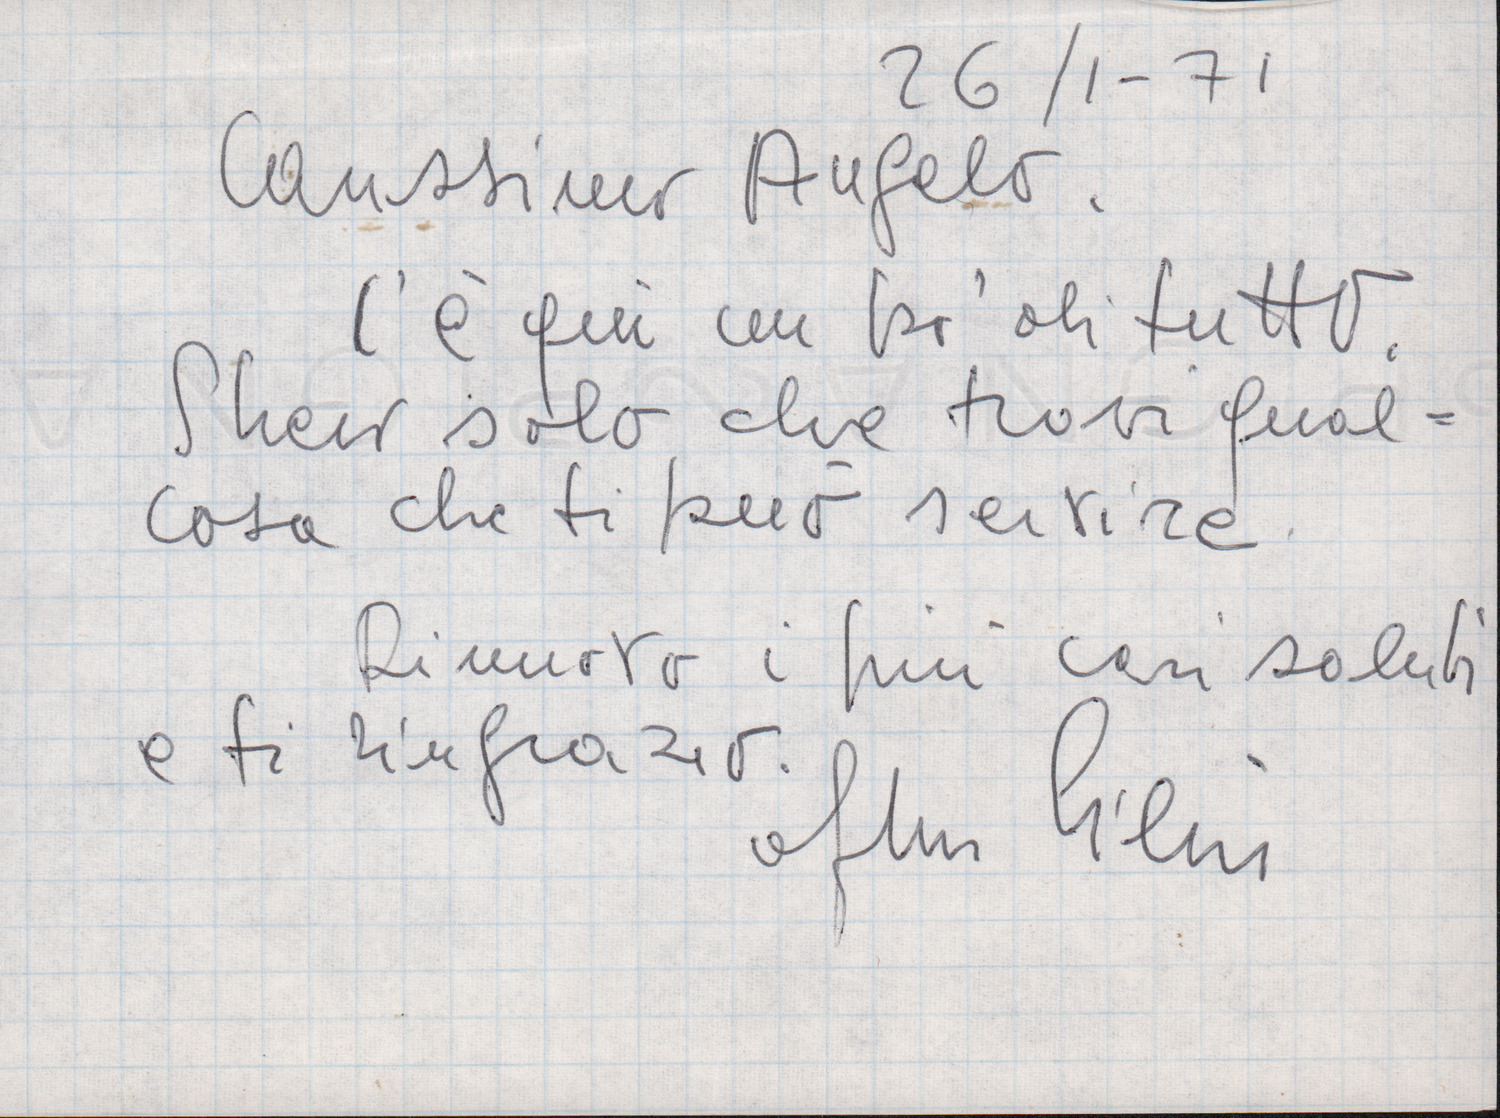 26/1-71
Carissimo Angelo.
C'è quì un pò di tutto.
Spero solo che trovi qual=
cosa che ti può servire.
Rinnovo i più cari saluti
e ti ringrazio.